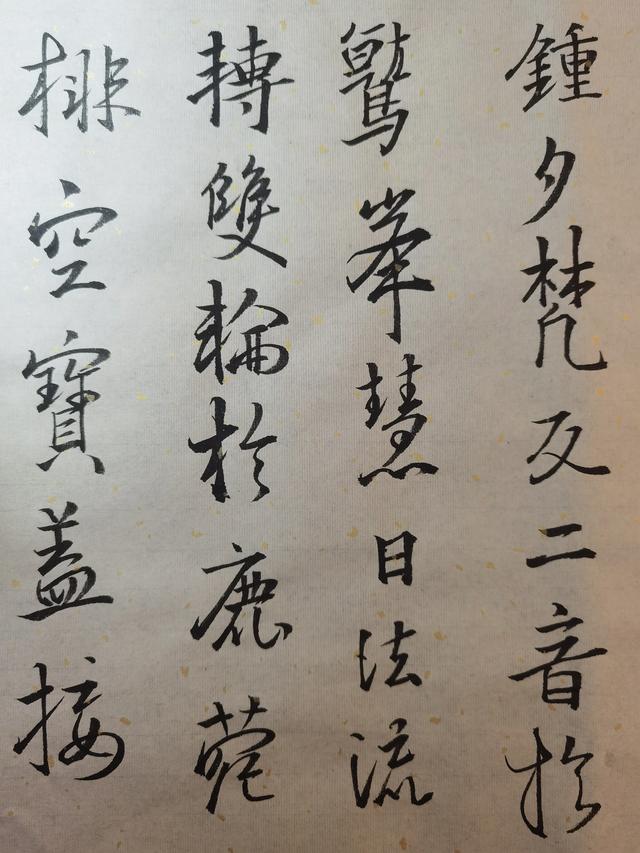 鍾夕梵交二音於
鷲峯慧日法流
轉雙輪於鹿菀
排空寶盖接